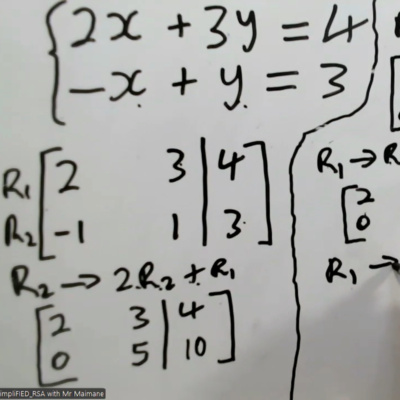 2x + 3y = 4
-x + y = 3
R₁ [2 3 | 4]
R₂ [-1 1 | 3]
R₂ → 2R₂ + R₁
[2 3 | 4]
[0 5 | 10]
R₁ → R
[2
0
R₁ →
impliFiED_RSA with Mr Maimane